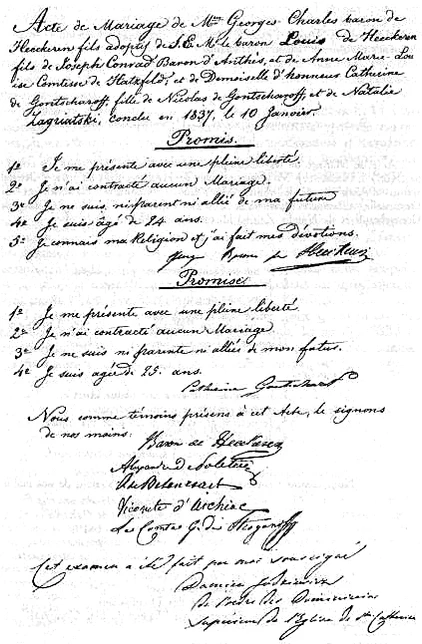 Acte de Mariage de Mr Georges Charles baron de
Heeckeren fils adoptif de S.E. Mr le baron Louis de Heeckeren
fils de Joseph Conrad Baron d'Anthès, et de Anne Marie-Lou
ise Comtesse de Hatzfeld, et de Demoiselle d'honneur Catherine
de Gontscharoff, fille de Nicolas de Gontscharoff, et de Natalie
Zagriatski, conclu en 1837, le 10 Janvier.
Promis.
1º Je me présente avec une pleine liberté.
2º Je n'ai contracté aucun Mariage.
3e Je ne suis ni parent ni allié de ma future
4e Je suis agé de 24 ans.
5e Je connais ma Religion et j'ai fait mes dévotions.
George Baron de Heeckeren
Promise
1º Je me présente avec une pleine liberté
2e Je n'ai contracté aucun Mariage
3e Je ne suis ni parente ni alliée de mon futur.
4e Je suis agée de 25 ans.
Catherine Gontcharoff
Nous comme témoins présens à cet Acte, le signons
de nos mains:
Baron de Heeckeren
Vicomte d'Archiac
Le Comte G. de Stroganoff
Cet examen a été fait par moi soussigné
Damien
de l'ordre des Dominicains
Supérieur de l'Eglise de Ste Catherine